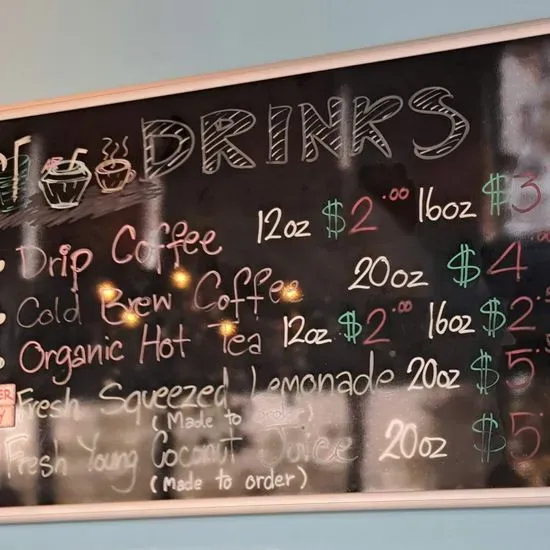 DRINKS
Drip Coffee 12oz $2.00 16oz $3
Cold Brew Coffee 20oz $4
Organic Hot Tea 12oz $2.00 16oz $2.
Fresh Squeezed Lemonade 20oz $5
(Made to order)
Fresh Young Coconut Juice 20oz $5
(Made to order)